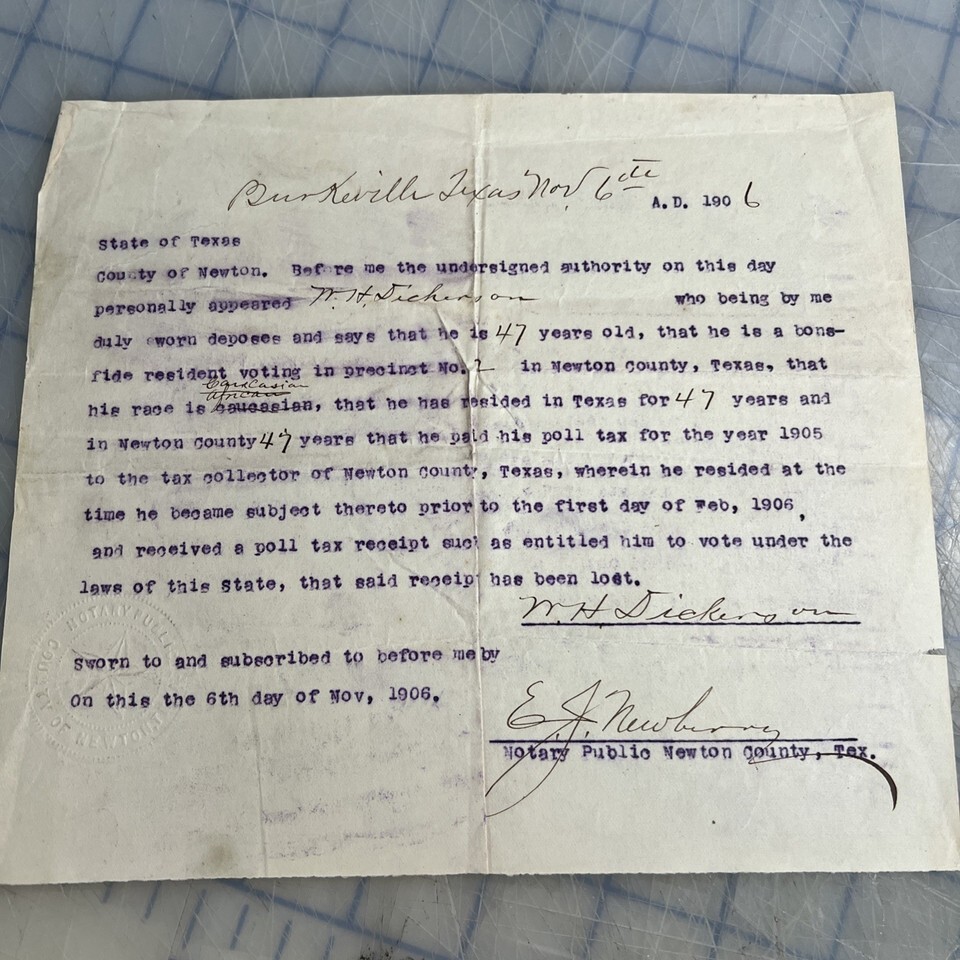 Burkeville Texas Nov. 6th A.D. 1906
State of Texas
County of Newton. Before me the undersigned authority on this day
personally appeared W. H. Dickerson who being by me
duly sworn deposes and says that he is 47 years old, that he is a bona-
fide resident voting in precinct No. 2 in Newton County, Texas, that
Caucasian
african
his race is caucasian, that he has resided in Texas for 47 years and
in Newton County 47 years that he paid his poll tax for the year 1905
to the tax collector of Newton County, Texas, wherein he resided at the
time he became subject thereto prior to the first day of Feb, 1906,
and received a poll tax receipt such as entitled him to vote under the
laws of this State, that said receipt has been lost.
W. H. Dickerson
Sworn to and subscribed to before me by
On this the 6th day of Nov, 1906.
E. J. Newberry
Notary Public Newton County, Tex.
NOTARY PUBLIC
OF NEWTON